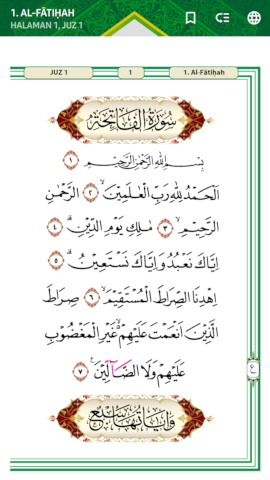 1. AL-FĀTIḤAH
HALAMAN 1, JUZ 1
JUZ 1
1
1. Al-Fātiḥah
سُوْرَةُ الْفَاتِحَةِ
بِسْمِ اللّٰهِ الرَّحْمٰنِ الرَّحِيْمِ ١
اَلْحَمْدُ لِلّٰهِ رَبِّ الْعٰلَمِيْنَۙ ٢ الرَّحْمٰنِ
الرَّحِيْمِۙ ٣ مٰلِكِ يَوْمِ الدِّيْنِۗ ٤
اِيَّاكَ نَعْبُدُ وَاِيَّاكَ نَسْتَعِيْنُۗ ٥
اِهْدِنَا الصِّرَاطَ الْمُسْتَقِيْمَۙ ٦ صِرَاطَ
الَّذِيْنَ اَنْعَمْتَ عَلَيْهِمْ ەۙ غَيْرِ الْمَغْضُوْبِ
عَلَيْهِمْ وَلَا الضَّاۤلِّيْنَࣖ ٧
وَاٰيَاتُهَا سَبْعٌ